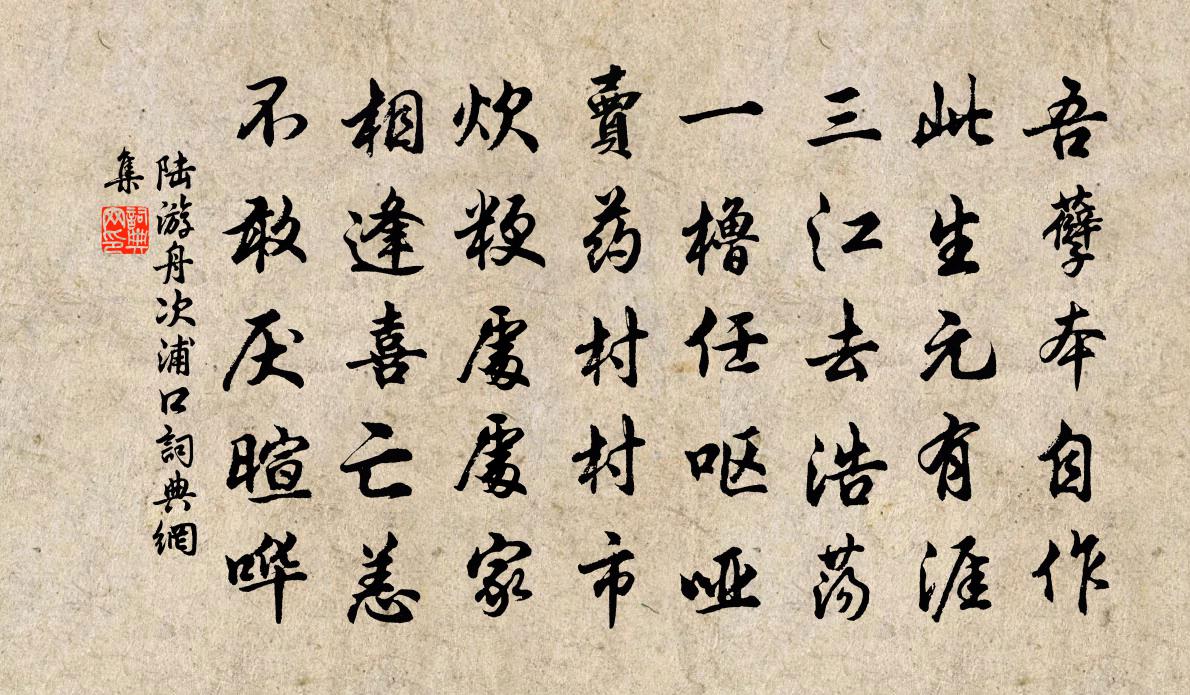 吾孽本自作
此生元有涯
三江去浩荡
一橹任呕哑
賣药村村市
炊粳處處家
相逢喜亡恙
不敢厌暄哗
陆游舟次浦口詞典網
集
詞典
网印